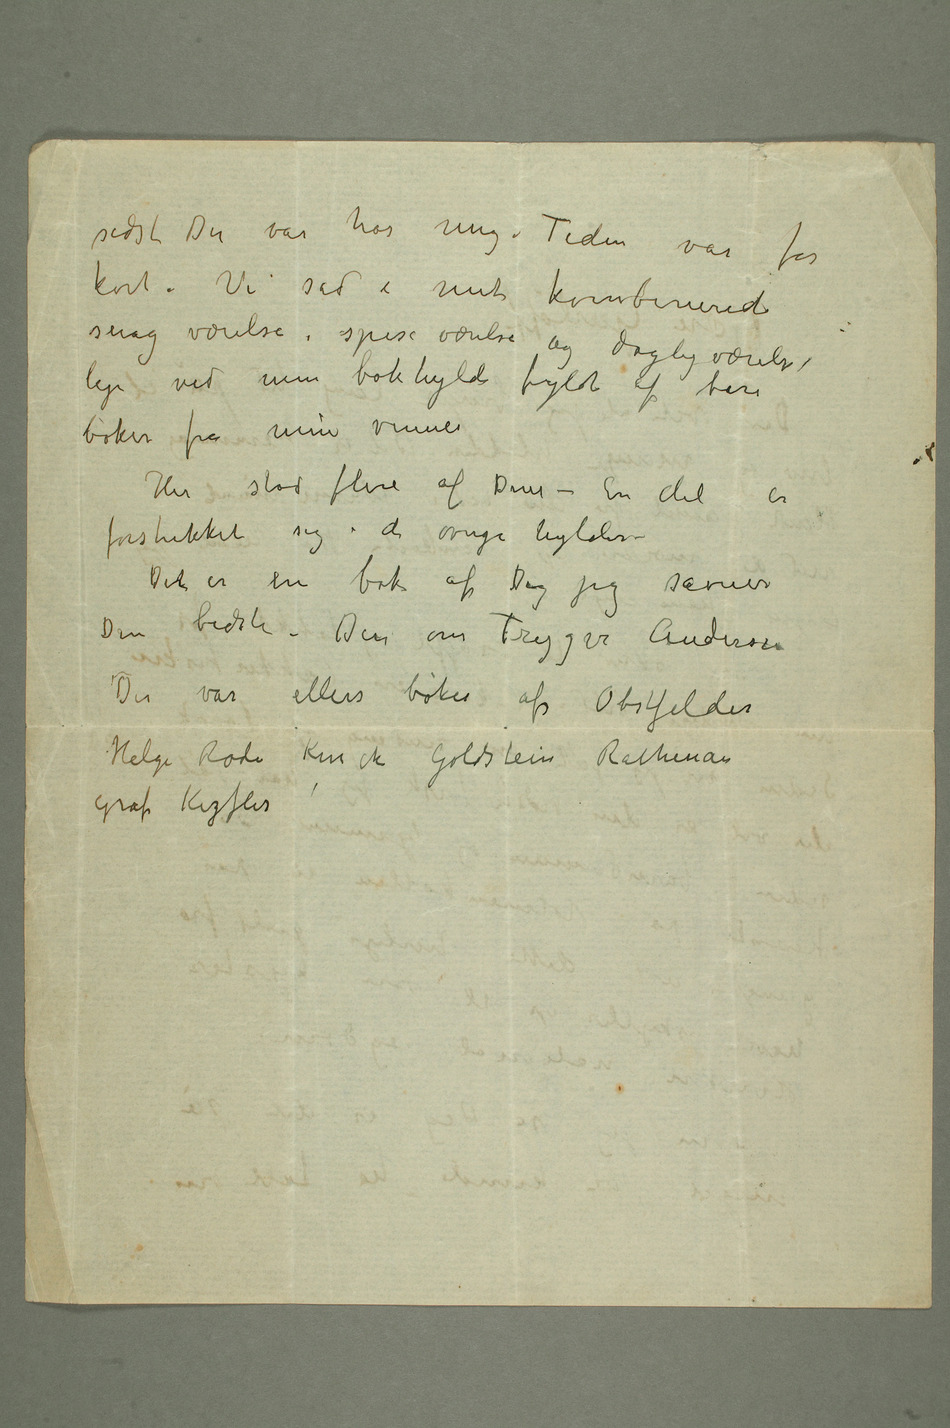 sidst Du var hos mig. Tiden var for
kort. Vi sad i mit kombinered
sengværelse, spiseværelse og dagligværelse,
lige ved min bokhylde fyldt af bare
bøker fra mine venner
Her stod flere af Dine – En del er
forstukket sig i de øvrige hylder –
Det er en bok af Dig jeg savner
Din bedste – Den om Trygve Andersen
Der var ellers bøker af Obstfelder
Helge Rode Kinck Goldstein Rathenau
Graf Kezsler